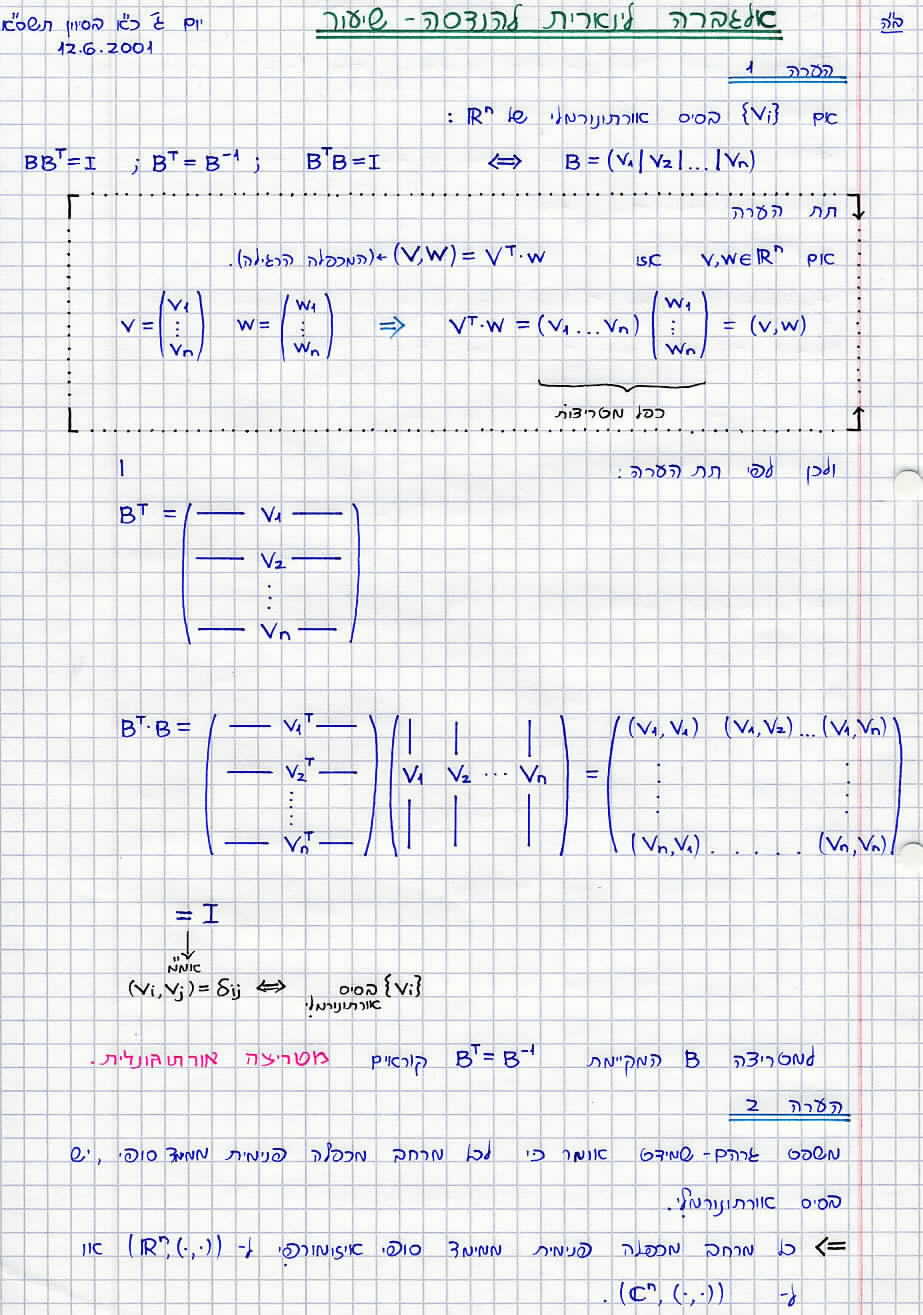 ב"ה
אלגברה לינארית להנדסה - שיעור
יום ג' כ"א בסיוון תשס"א
12.6.2001
הערה 1
אם {Vi} בסיס אורתונורמלי של ℝⁿ :
B = (V₁|V₂|...|Vn) ⇔ BᵀB = I ; Bᵀ = B⁻¹ ; BBᵀ = I
תת הערה
אם V,W∈ℝⁿ אז (V,W) = Vᵀ·W ← (המכפלה הרגילה).
V = (V₁ ⋮ Vn) W = (W₁ ⋮ Wn) ⇒ Vᵀ·W = (V₁ ... Vn) (W₁ ⋮ Wn) = (V,W)
כפל מטריצות
ולכן לפי תת הערה :
Bᵀ = (— V₁ — — V₂ — ⋮ — Vn —)
Bᵀ·B = (— V₁ᵀ — — V₂ᵀ — ⋮ — Vnᵀ —) (V₁ V₂ ... Vn) = ((V₁,V₁) (V₁,V₂) ... (V₁,Vn) ⋮ ⋮ (Vn,V₁) . . . . . (Vn,Vn))
= I
אומ"מ
(Vi,Vj) = δij ⇔ {Vi} בסיס אורתונורמלי
למטריצה B המקיימת Bᵀ = B⁻¹ קוראים מטריצה אורתוגונלית.
הערה 2
משפט גרהם - שמידט אומר כי לכל מרחב מכפלה פנימית ממימד סופי, יש
בסיס אורתונורמלי.
⇐ כל מרחב מכפלה פנימית ממימד סופי איזומורפי ל- (ℝⁿ,(·,·)) או
ל- (ℂⁿ,(·,·)).